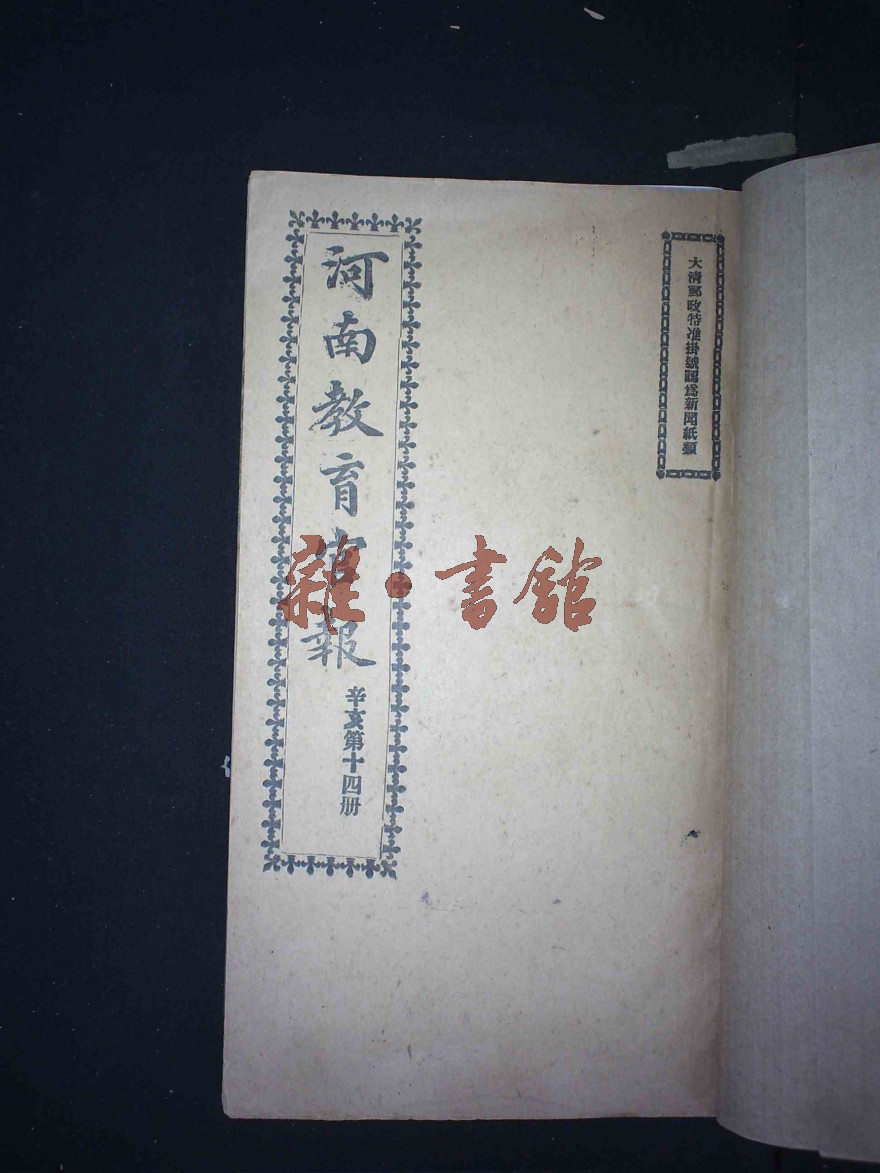 大清郵政特准掛號認爲新聞紙類
河南教育官報
辛亥第十四册
雜·書館